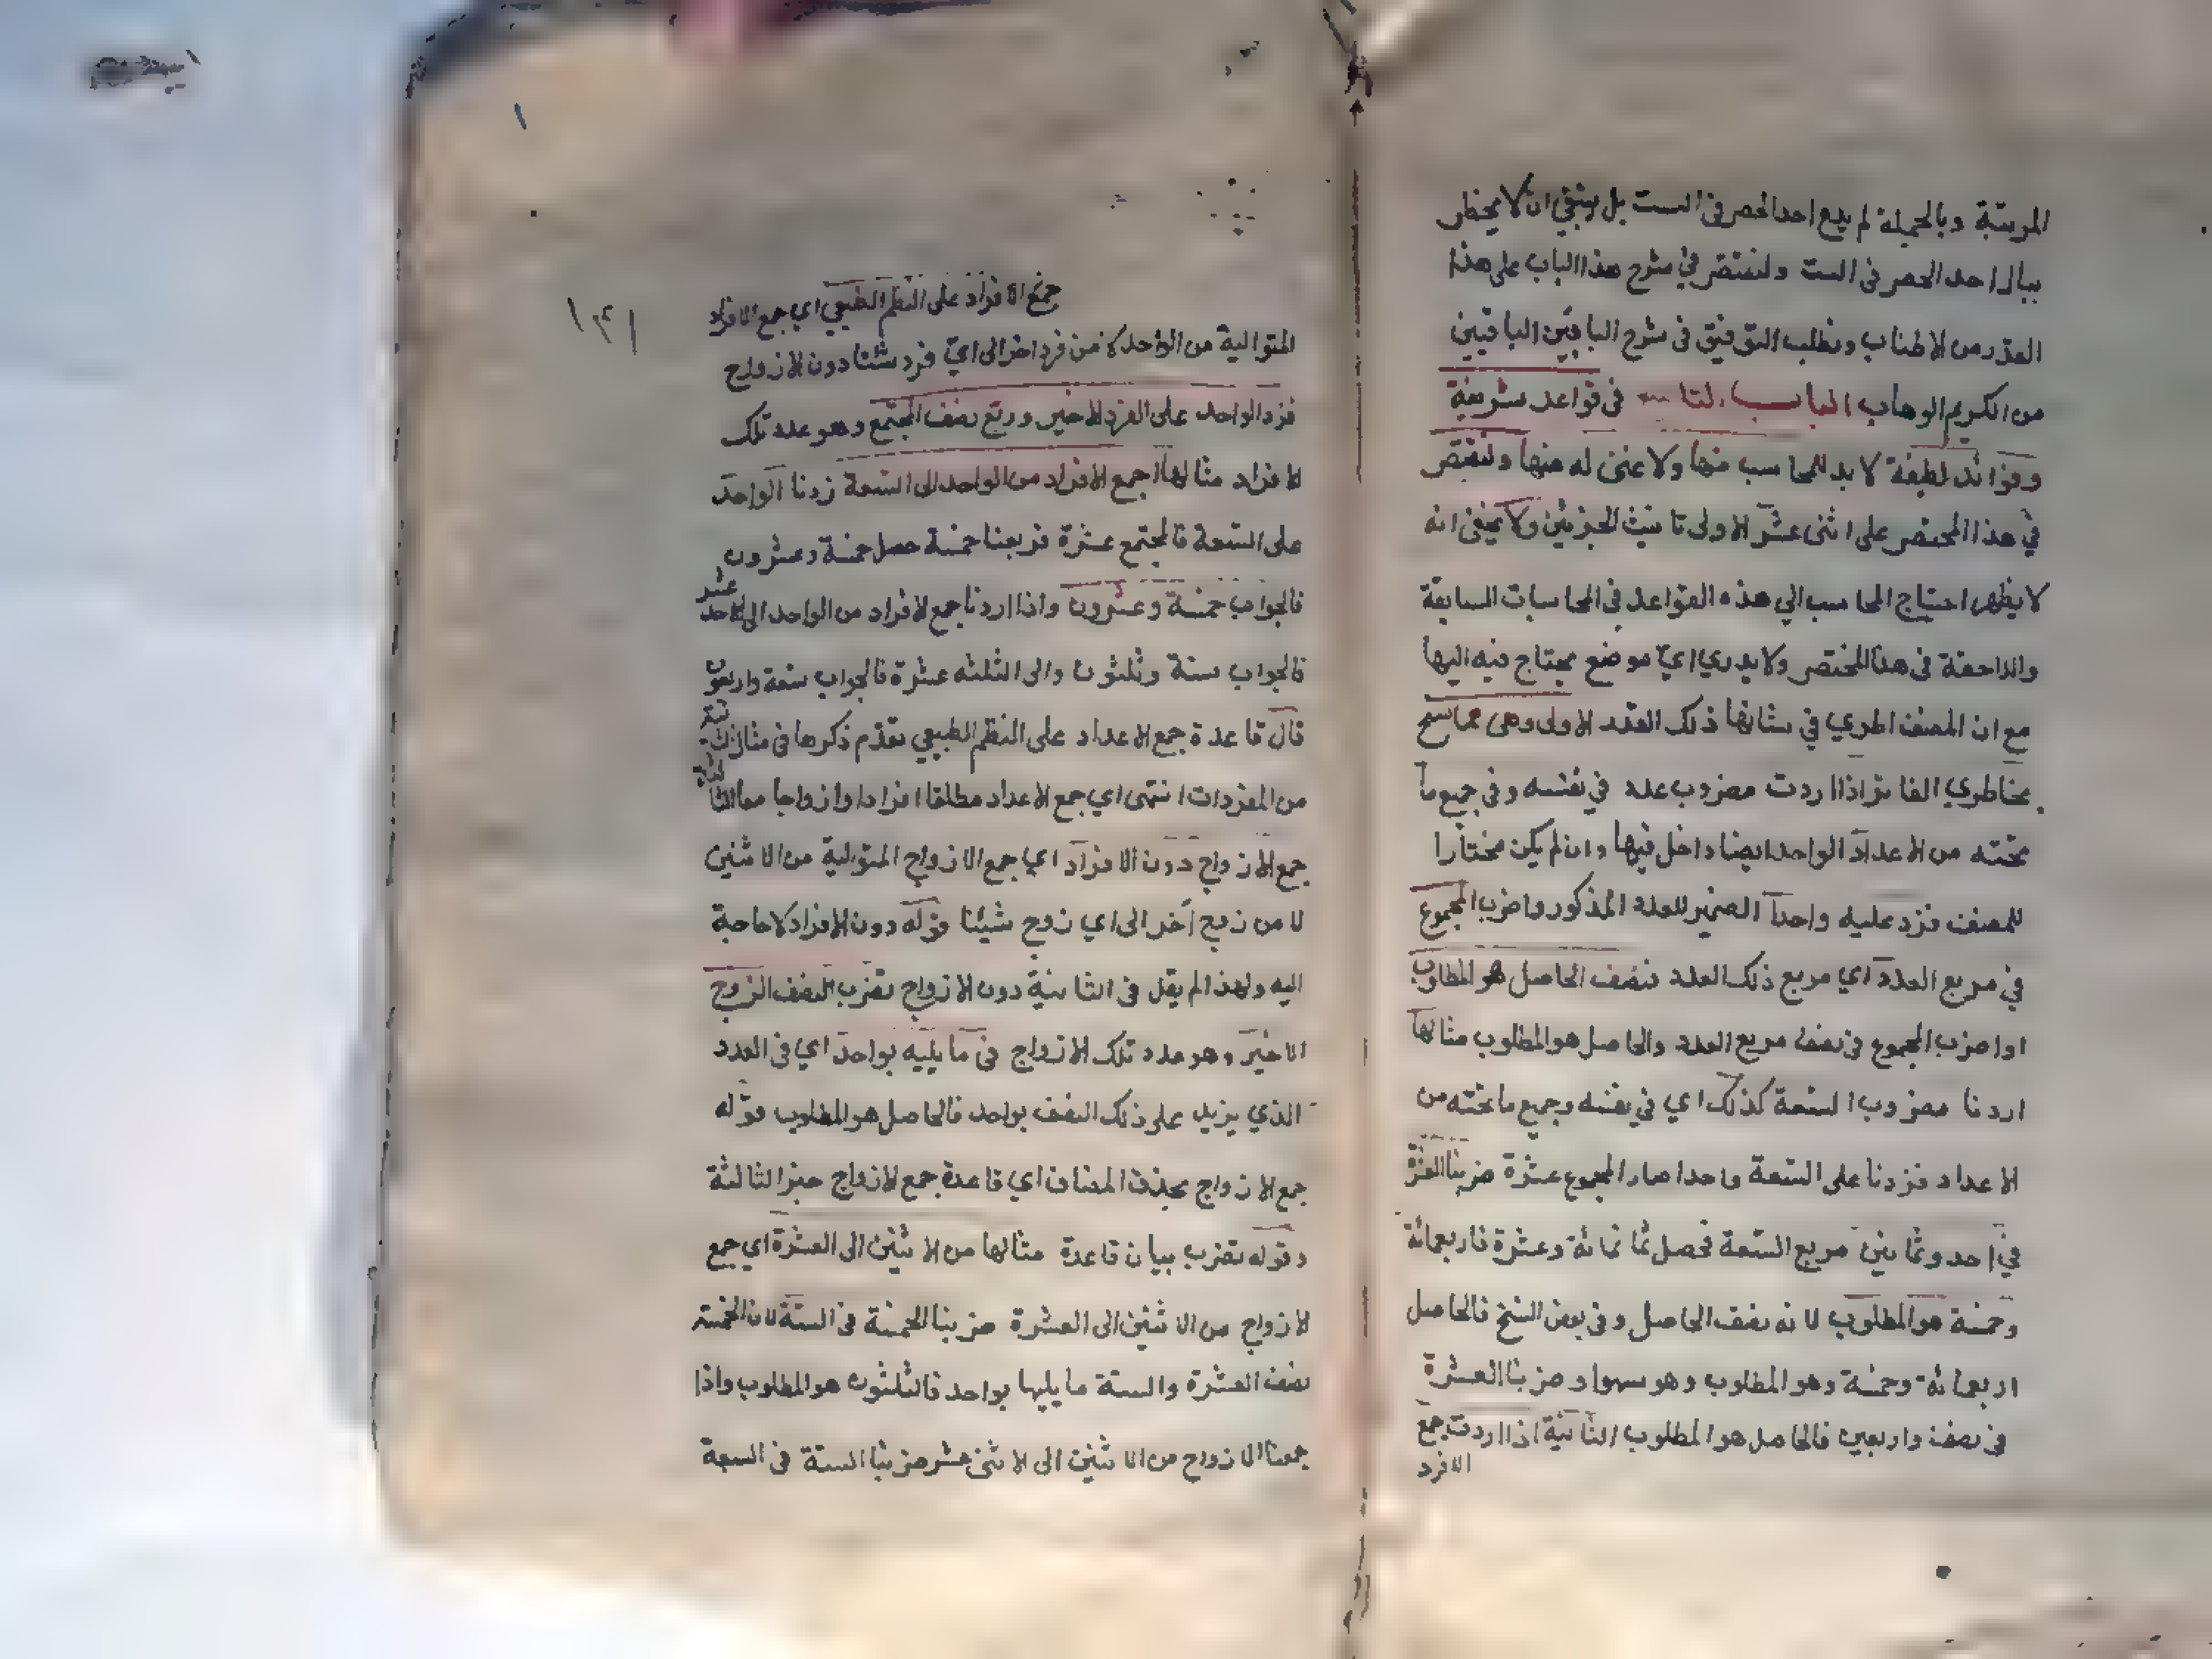 المرتبة وبالجملة لم يدع احد الحصر فى الست بل ينبغي ان لا يخطر
ببال احد الحصر فى الست ولنقتصر في شرح هذا الباب على هذا
القدر من الاطناب ونطلب التوفيق فى شرح البابين الباقيين
من الكريم الوهاب الباب التاسع فى قواعد شريفة
وفوائد لطيفة لا بد للمحاسب منها ولا غنى له عنها ولنقتصر
في هذا المختصر على اثنى عشر الاولى تانيث الجزئين ولا يخفى انه
لا يظهر احتياج المحاسب الي هذه القواعد فى المحاسبات السابقة
واللاحقة فى هذا المختصر ولا يدري اي موضع يحتاج فيه اليها
مع ان المصنف اطري في شانها ذلك القدر الاولى وهى مما سنح
بخاطري الفاتر اذا اردت مضروب عدد في نفسه وفى جميع ما
تحته من الاعداد الواحد ايضا داخل فيها وان لم يكن مختارا
للمصنف فزد عليه واحدا الضمير للعدد المذكور واضرب المجموع
في مربع العدد اي مربع ذلك العدد فنصف الحاصل هو المطلوب
او اضرب المجموع فى نصف مربع العدد والحاصل هو المطلوب مثالها
اردنا مضروب التسعة كذلك اي في نفسه وجميع ما تحته من
الاعداد فزدنا على التسعة واحدا صار المجموع عشرة ضربنا العشرة
في احد وثمانين مربع التسعة فحصل ثمانمائة وعشرة فاربعمائة
وخمسة هو المطلوب لانه نصف الحاصل وفى بعض النسخ فالحاصل
اربعمائة وخمسة وهو المطلوب وهو سهو او ضربنا العشرة
فى نصف واربعين فالحاصل هو المطلوب الثانية اذا اردت جمع
الافرد
١٢١
جمع الافراد على النظم الطبيعي اي جمع الافراد
المتوالية من الواحد لا من فرد اخر الى اي فرد شئنا دون الازواج
فزد الواحد على الفرد الاخير وربع نصف المجتمع وهو عدد تلك
الافراد مثالها جمع الافراد من الواحد الى التسعة زدنا الواحد
على التسعة فالمجتمع عشرة فربعنا خمسة حصل خمسة وعشرون
فالجواب خمسة وعشرون واذا اردنا جمع الافراد من الواحد الى الاحد عشر
فالجواب ستة وثلثون والى الثلثه عشرة فالجواب تسعة واربعون
قال قاعدة جمع الاعداد على النظم الطبيعي تقدم ذكرها فى مثال
من المفردات انتهى اي جمع الاعداد مطلقا افرادا وازواجا معا الثالثة
جمع الازواج دون الافراد اي جمع الازواج المتوالية من الاثنين
لا من زوج آخر الى اي زوج شئنا قوله دون الافراد لا حاجة
اليه ولهذا لم يقل فى الثانية دون الازواج تضرب النصف الزوج
الاخير وهو عدد تلك الازواج فى ما يليه بواحد اي فى العدد
الذي يزيد على ذلك النصف بواحد فالحاصل هو المطلوب قوله
جمع الازواج بحذف المضاف اي قاعدة جمع الازواج خبر الثالثة
وقوله تضرب بيان قاعدة مثالها من الاثنين الى العشرة اي جمع
الازواج من الاثنين الى العشرة ضربنا الخمسة فى الستة لان الخمسة
نصف العشرة والستة ما يليها بواحد فالثلثون هو المطلوب واذا
جمعنا الازواج من الاثنين الى الاثنى عشر ضربنا الستة فى السبعة